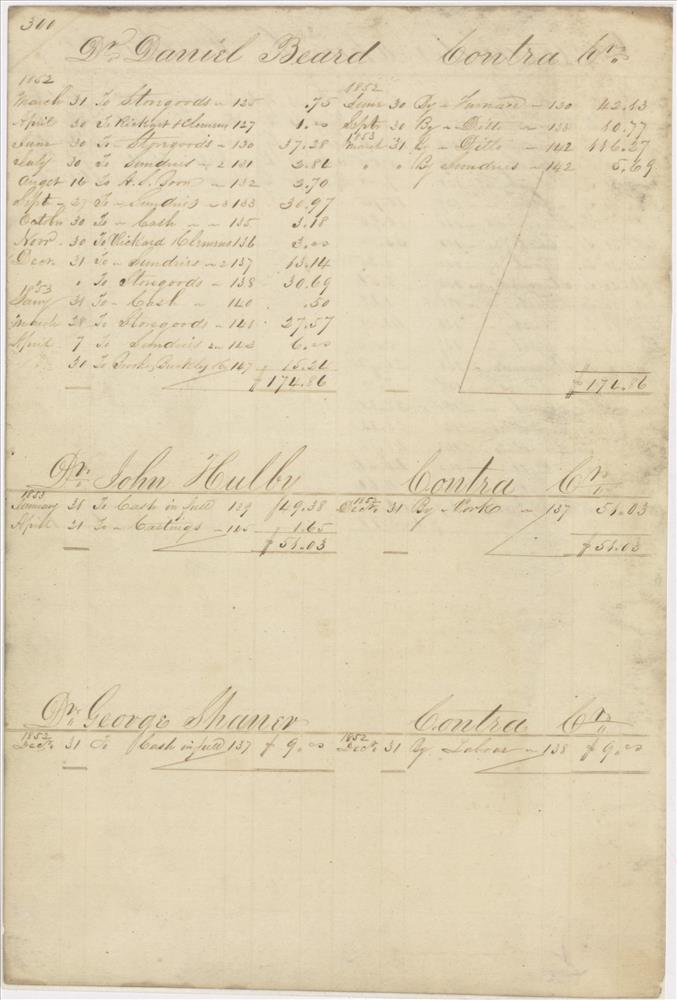 300
Dr. Daniel Beard Contra Cr.
1852
March 31 To Storgoods " 125 .75
April 30 To Rickhart & Clemens 127 1.00
June 30 To Storgoods " 130 37.28
July 30 To Sundries " 2 131 2.82
Augst 16 To A. S. 132 2.70
Sept 27 To Sundries 133 30.97
Octobr 30 To Cash " 135 3.18
Novr 30 To Rickard Clemens 136 3.00
Decr. 31 To Sundries " 2 137 13.14
" To Storgoods " 138 30.69
1853
Jany 31 To Cash " 140 .50
March 28 To Storgoods " 141 27.57
April 7 To Sundries 142 6.00
31 To Buckley 147 15.24
$174.86
1852
June 30 By Furnace " 130 42.13
Sept. 30 By Ditto " 133 10.77
1853
March 31 By Ditto " 142 116.27
" " By Sundries " 142 5.69
$174.86
Dr. John Hulby Contra Cr.
1853
January 31 To Cash in full 139 $49.38
April 21 To Castings " 145 1.65
$51.03
1852
Dect. 31 By Work " 137 51.03
$51.03
Dr. George Shaner Contra Cr.
1852
Dect. 31 To Cash in full 137 $9.00
1852
Dect. 31 By Labour " 138 $9.00